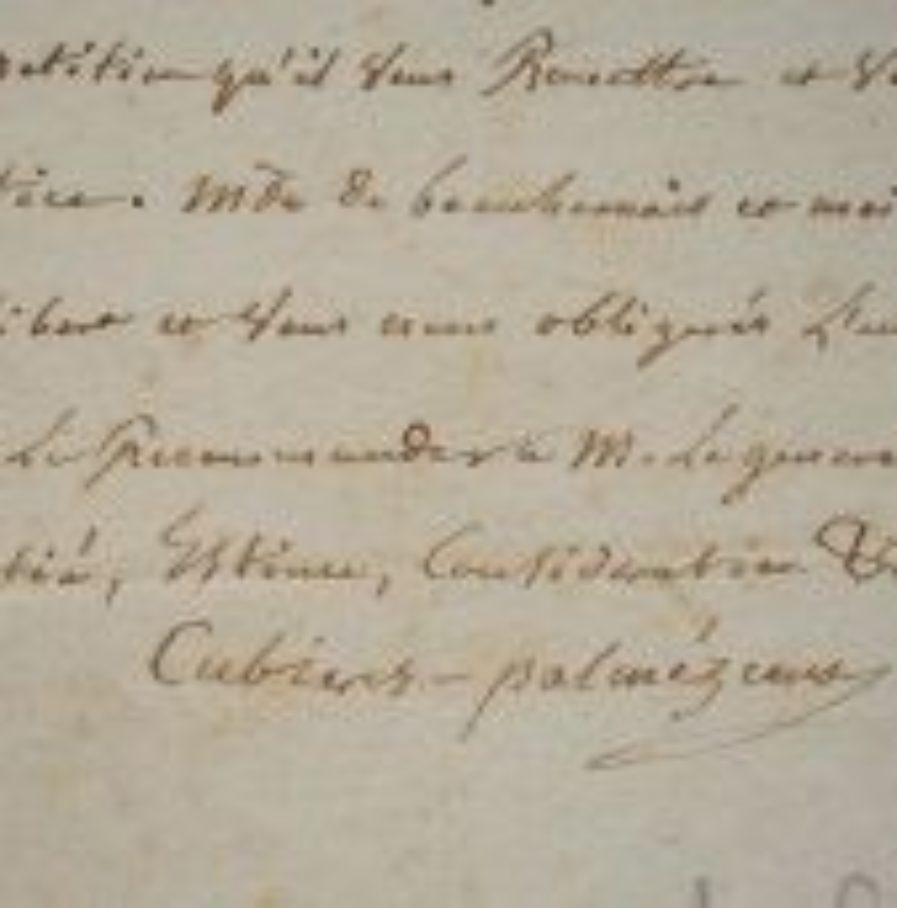 petition qu'il vous Remettra et V
tice. Mde de beauharnais et moi
ibert et vous nous obligerés L'un
Le Recommander à M. Le genera
tié, Estime, Consideration &
Cubieres - palmézeaux